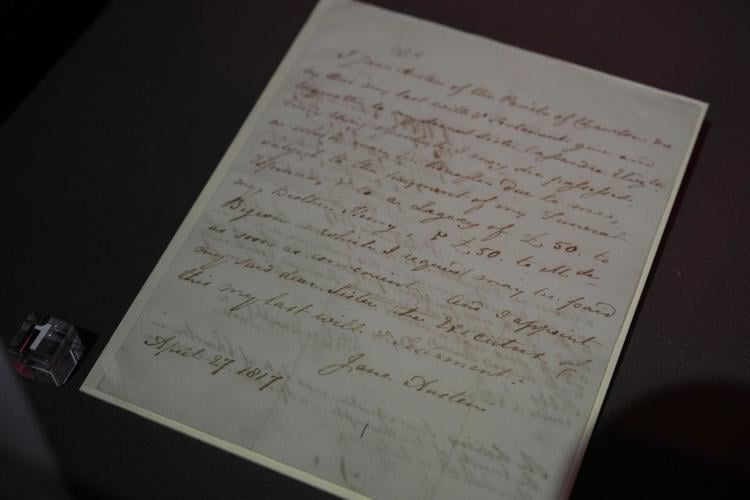 I Jane Austen of the Parish of Chawton do
by this my last will & Testament give and
bequeathe to my dearest Sister Cassandra Elizth
every thing of which I may die possessed,
or which may be hereafter due to me,
subject to the payment of my Funeral
Expences, & to a Legacy of £50. to
my Brother Henry, & £50. to Mde de
Bigeon which I request may be paid
as soon as convenient. And I appoint
my said dear Sister the Executrix of
this my last will & Testament.
Jane Austen
April 27. 1817
1